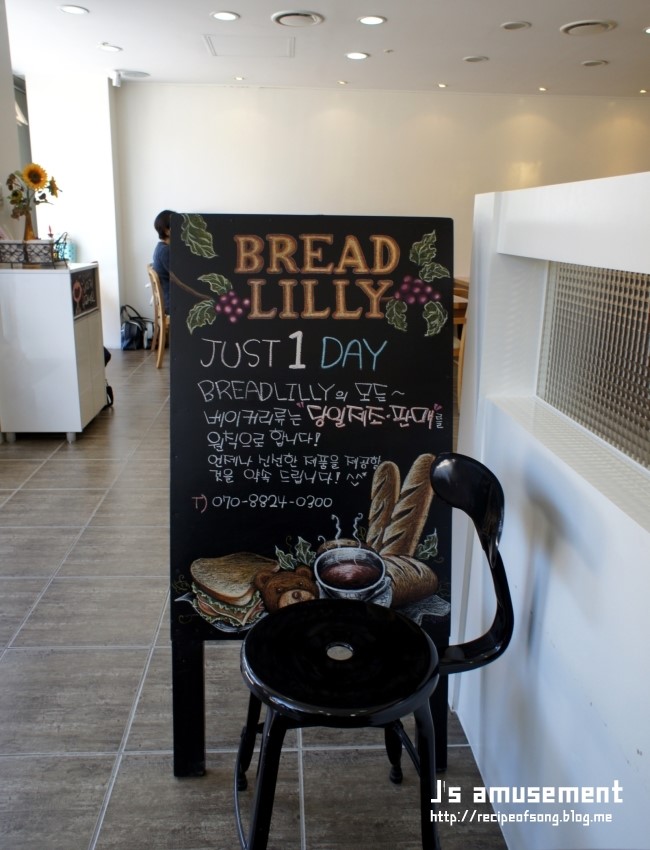 BREAD
LILLY
JUST 1 DAY
BREADLILLY의 모든~
베이커리류는 "당일제조·판매"를
원칙으로 합니다!
언제나 신선한 제품을 제공할
것을 약속 드립니다! ^^
T) 070-8824-0300
J's amusement
http://recipeofsong.blog.me